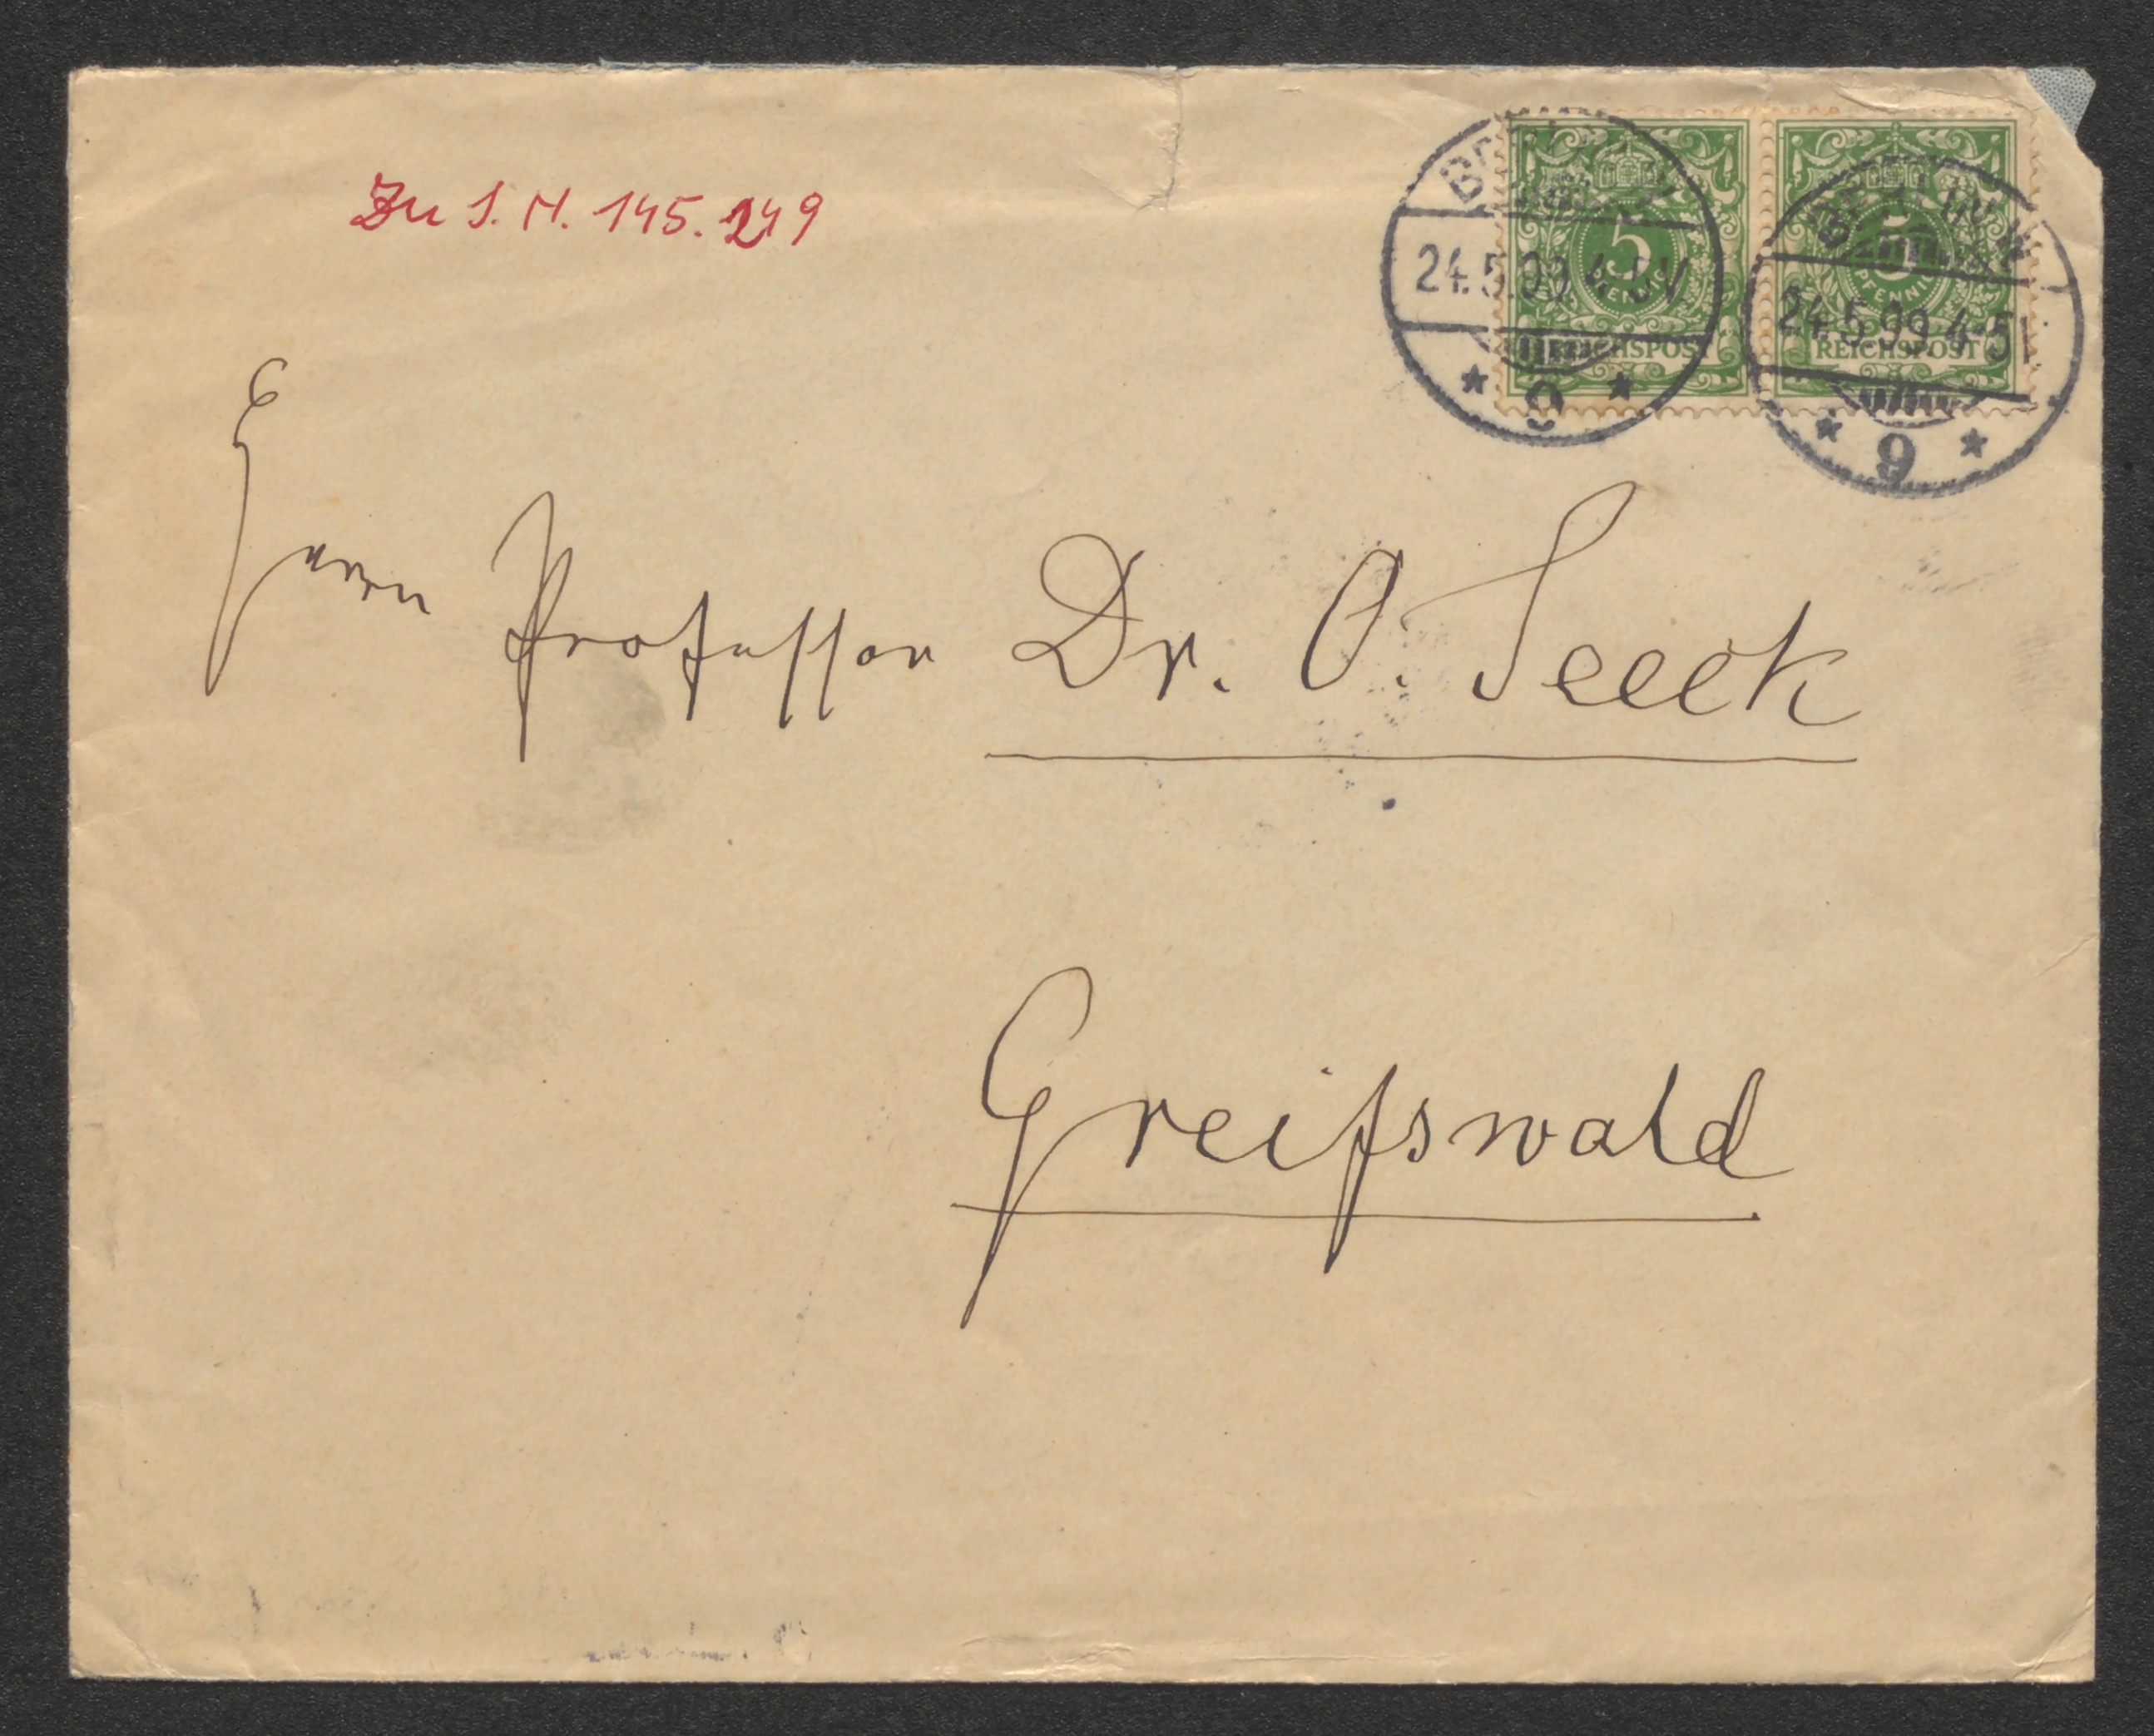 Zu S. N. 145.249
BERLIN W
24.5.99.4-5V
* 9 *
5
PFENNIG
REICHSPOST
BERLIN W
24.5.99.4-5V
* 9 *
5
PFENNIG
REICHSPOST
Herrn Professor Dr. O. Seeck
Greifswald